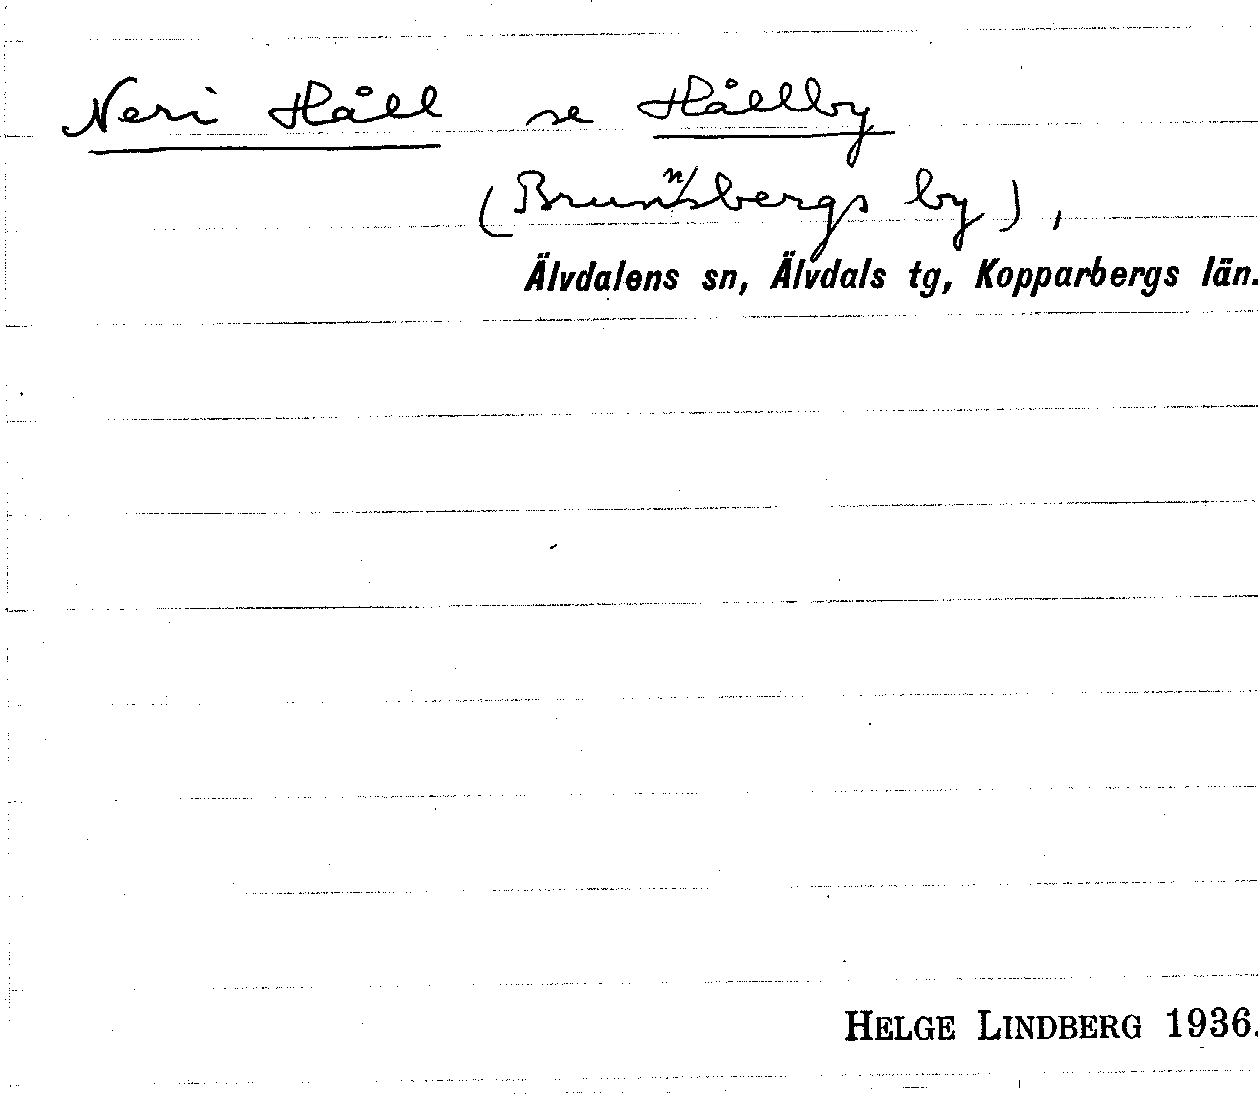 Neri Håll se Hållby
(Brunnsbergs by),
Älvdalens sn, Älvdals tg, Kopparbergs län.
HELGE LINDBERG 1936.